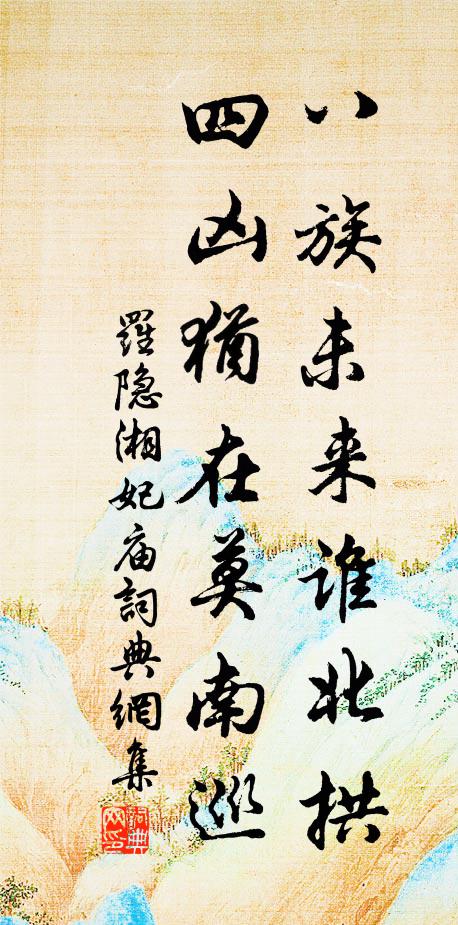 八族未来谁北拱
四凶犹在莫南巡
羅隐湘妃庙詞典網集
詞典
网印